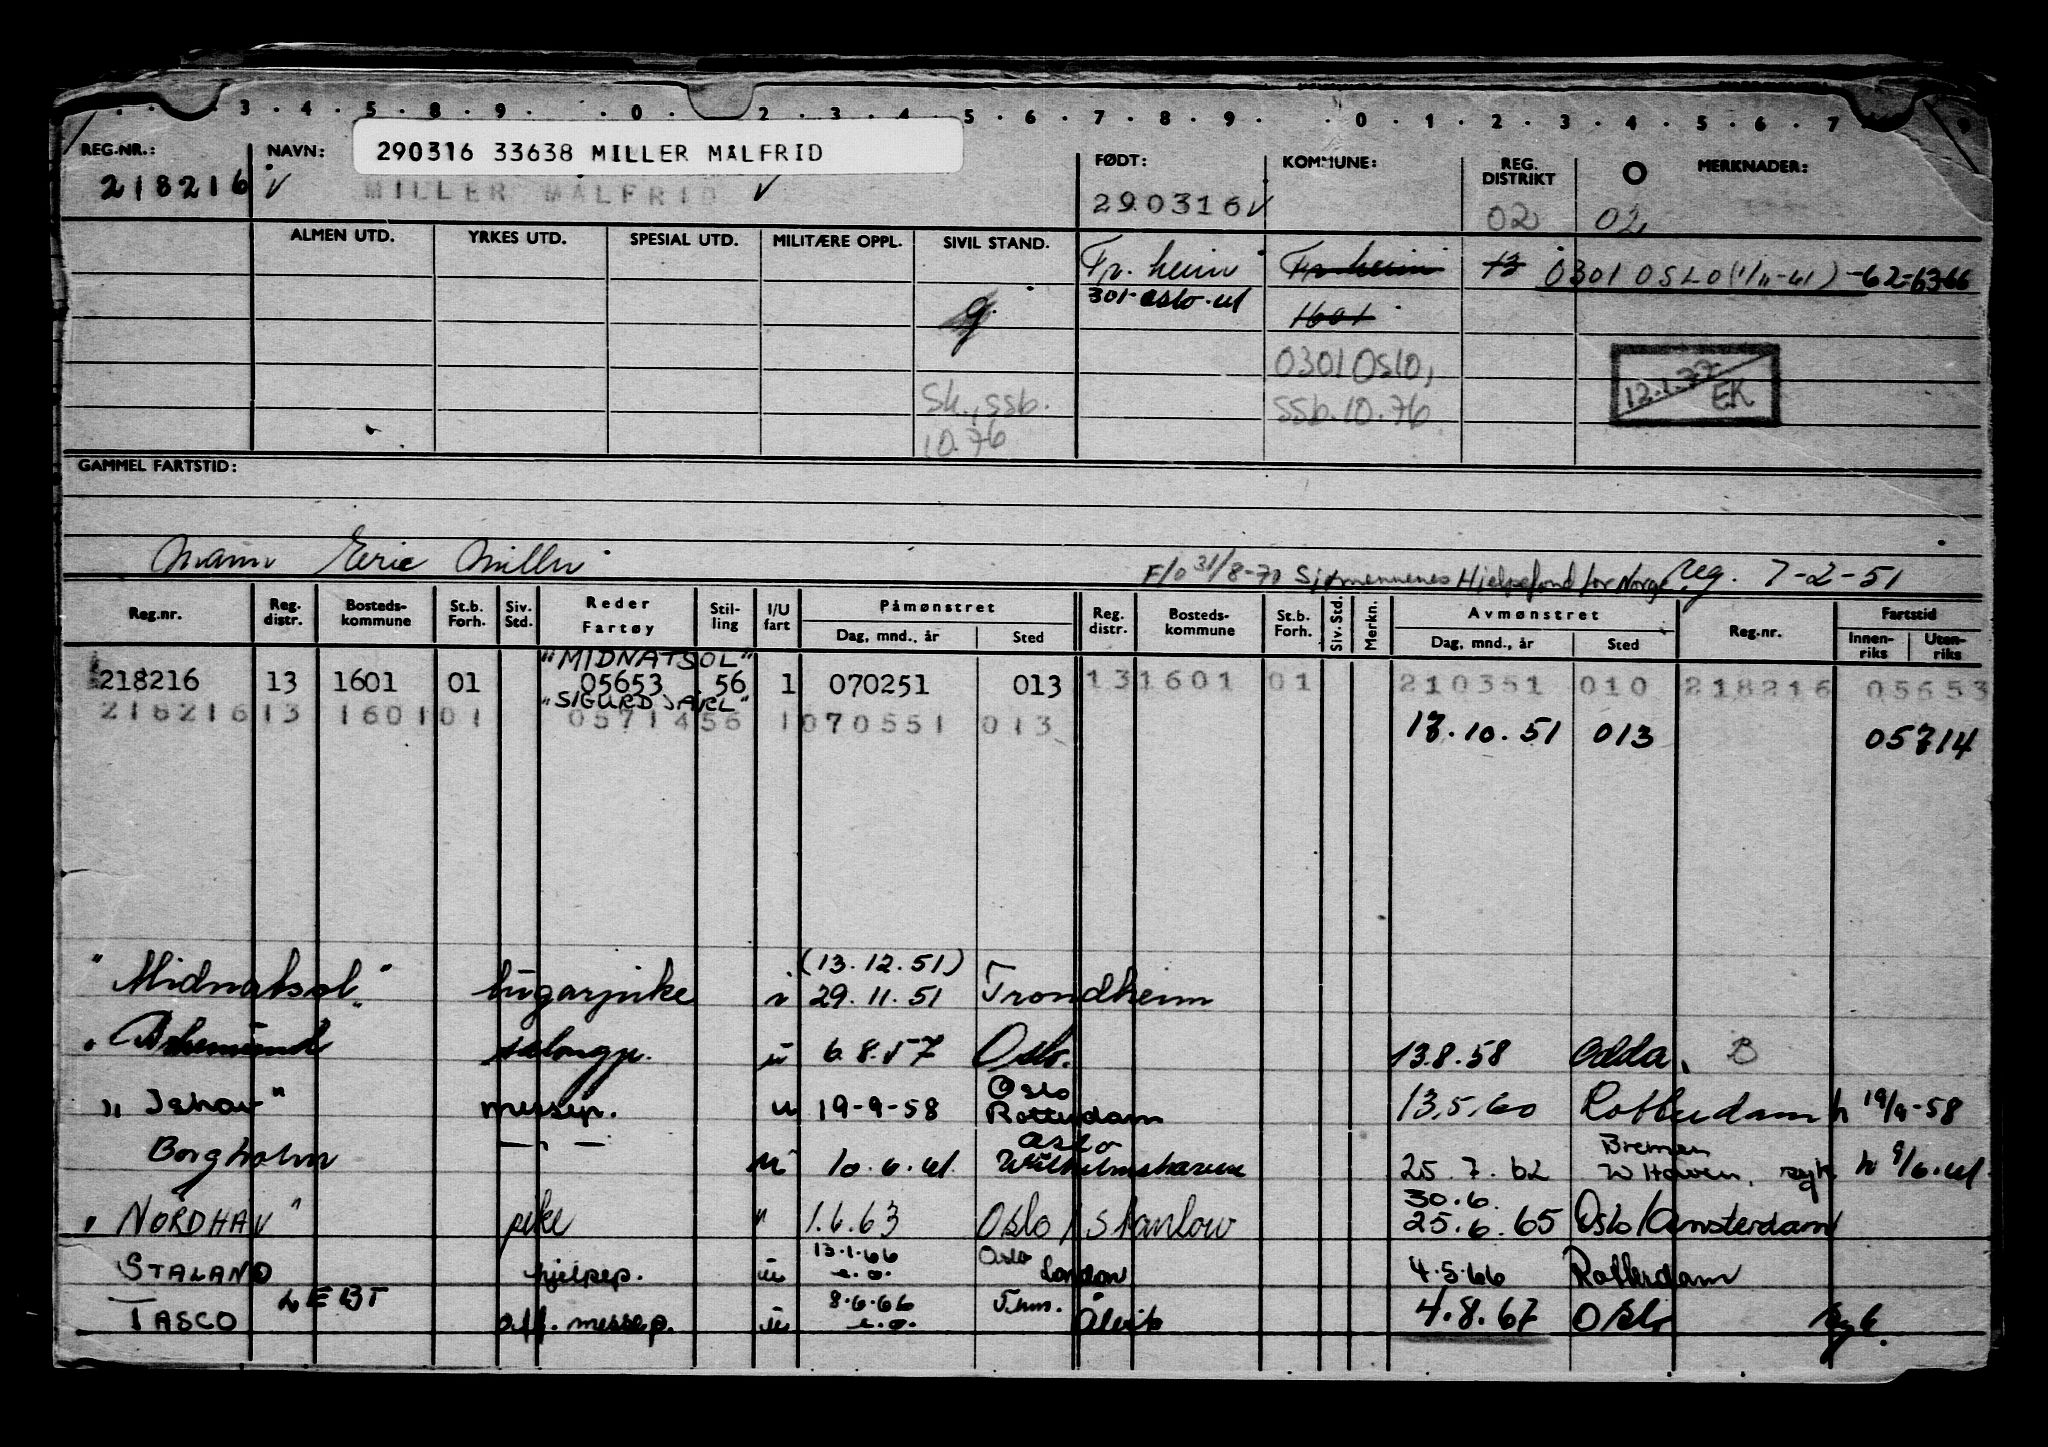 3 . 4 . 5 . 8 . 9 . . 0 . 2 . 3 . 4 . 5 . 6 . 7 . 8 . 9 . . 0 . 1 . 2 . 3 . 4 . 5 . 6 . 7 9
REG.NR.: NAVN: 290316 33638 MILLER MALFRID FØDT: KOMMUNE: REG. DISTRIKT O MERKNADER:
218216 MILLER MALFRID 290316 02 02
ALMEN UTD. YRKES UTD. SPESIAL UTD. MILITÆRE OPPL. SIVIL STAND. Tr. heim Tr. heim 13 0301 OSLO (1/11-61) -62-63-66
g. 301-oslo-61 1601
0301 Oslo, 12.1.77 EK
Sk., ssb. 10.76 ssb. 10.76
GAMMEL FARTSTID:
Mann Eric Miller F/o 31/8-70 Sjømennenes Hjelpefond for Norge reg. 7-2-51
Reg.nr. Reg. distr. Bosteds-kommune St.b. Forh. Siv. Std. Reder Fartøy Stil-ling I/U fart Påmønstret Dag, mnd., år Sted Reg. distr. Bosteds-kommune St.b. Forh. Siv. Std. Merkn. Avmønstret Dag, mnd., år Sted Reg.nr. Fartstid Innen-riks Uten-riks
"MIDNATSOL"
218216 13 1601 01 05653 56 1 070251 013 13 1601 01 210351 010 218216 05653
"SIGURD JARL"
218216 13 1601 01 05714 56 1 070551 013 18.10.51 013 05714
(13.12.51)
"Midnatsol" lugarpike i 29.11.51 Trondheim
salongp. u 6.8.57 Oslo. 13.8.58 Odda, B
Oslo
messep. u 19-9-58 Rotterdam 13.5.60 Rotterdam h 19/9-58
Oslo Bremen
Borgholm — " — u 10.6.61 Wilhelmshaven 25.7.62 W Haven, syk h 9/6.61
30.6.
"NORDHAV" pike " 1.6.63 Oslo / Stanlow 25.6.65 Oslo/Amsterdam
13.1.66 Oslo
STALAND hjelpep. u e.o. London 4.5.66 Rotterdam
LEBT 8.6.66 T.hm.
TASCO off. messep. u e.o. Ålvik 4.8.67 Oslo syk.